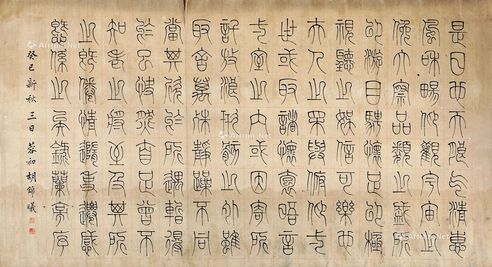 是日也天朗氣清惠
風和暢仰觀宇宙之
大俯察品類之盛所
以遊目騁懷足以極
視聽之娛信可樂也
夫人之相與俯仰一
世或取諸懷抱悟言
一室之內或因寄所
託放浪形骸之外雖
取舍萬殊靜躁不同
當其欣於所遇暫得
於己快然自足曾不
知老之將至及其所
之既倦情隨事遷感
慨係之矣錄蘭亭序
癸巳新秋三日蓉初胡錦曦